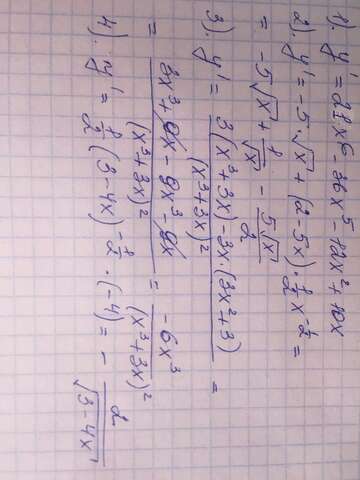 1). y = 21x⁶ - 36x⁵ - 12x² + 10x
2). y' = -5·√x + (2-5x)·½x^(-½) =
= -5√x + 1/√x - 5√x/2
3). y' = (3(x³+3x) - 3x·(3x²+3))/(x³+3x)² =
= (3x³ + 9x - 9x³ - 9x)/(x³+3x)² = -6x³/(x³+3x)²
4). y' = ½(3-4x)^(-½)·(-4) = -2/√(3-4x)